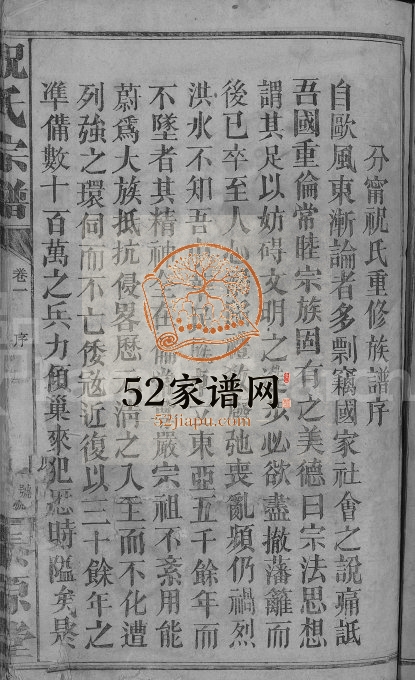 分甯祝氏重修族譜序
自歐風東漸論者多剽竊國家社會之說痛詆
吾國重倫常睦宗族固有之美德曰宗法思想
謂其足以妨碍文明之必欲盡撤藩籬而
後已卒至人心弛喪亂頻仍禍烈
洪水不知吾東亞五千餘年而
不墜者其精神在嚴宗祖不紊用能
蔚爲大族抵抗侵畧歷滿之入主而不化遭
列強之環伺而不亡倭寇近復以三十餘年之
準備數十百萬之兵力傾巢來犯慝時隘矣是
祝氏宗譜
卷一
序
52家谱网
52jiapu.com